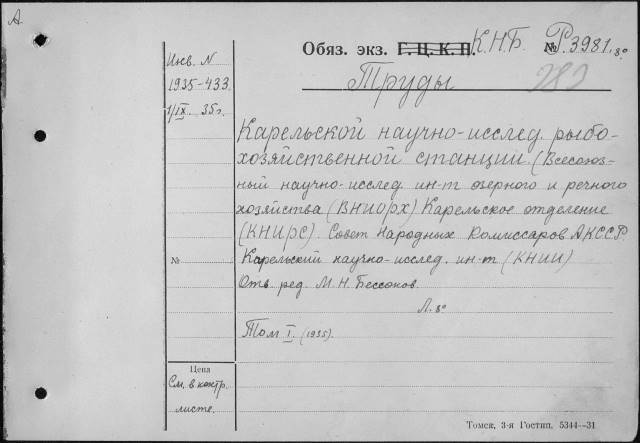 А
Обяз. экз. Г. Ц. К. П. К.Н.Б. № Р.3981. 8°
Инв. N
1935-433
1/IX. 35г.
Труды
282
Карельской научно-исслед. рыбо-
хозяйственной станции. (Всесоюз-
ный научно-исслед. ин-т озерного и речного
хозяйства (ВНИОРХ) Карельское отделение
(КНИРС). Совет Народных Комиссаров АКССР.
№ Карельский научно-исслед. ин-т (КНИИ)
Отв. ред. М.Н. Бессонов.
Л. 8°
Том I. (1935).
Цена
См. в контр.
листе.
Томск, 3-я Гостип. 5344—31